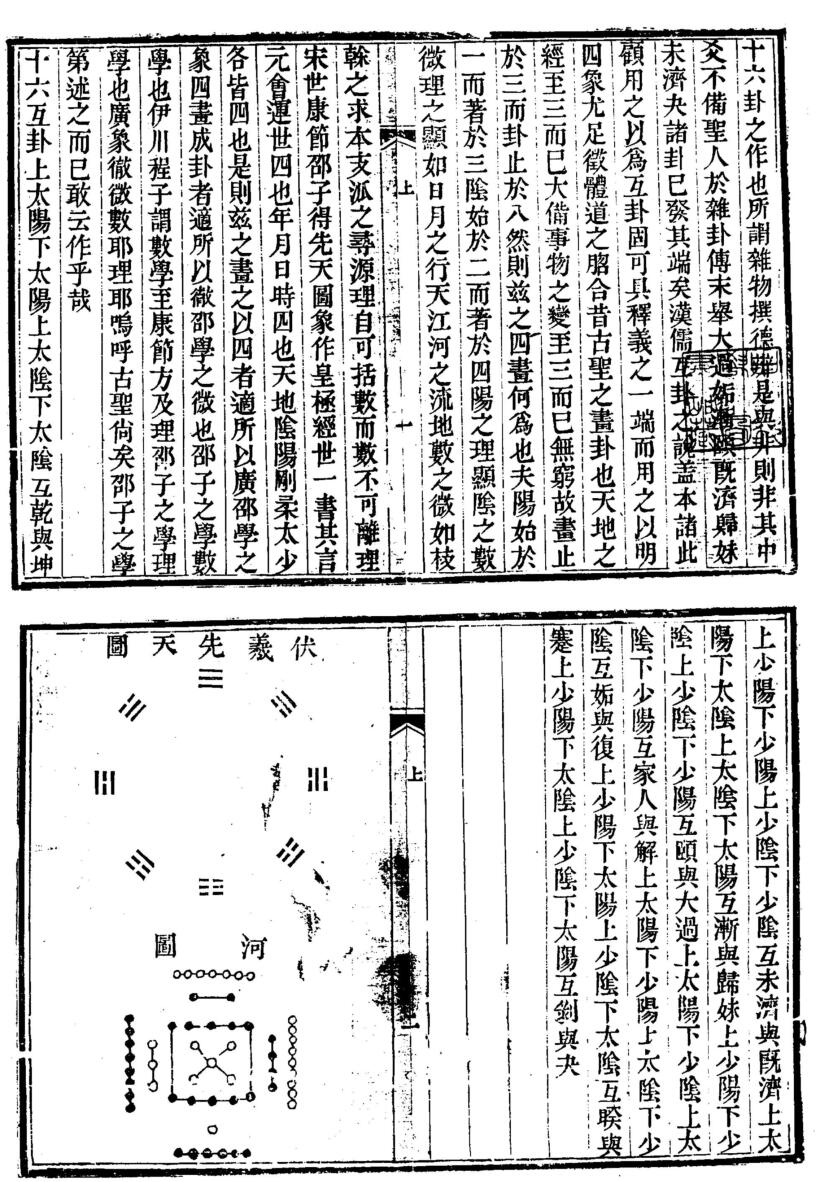 十六卦之作也所謂雜物撰德辯是與非則非其中
爻不備聖人於雜卦傳末舉大過姤漸頤旣濟歸妹
未濟夬諸卦已發其端矣漢儒互卦之說盖本諸此
顧用之以爲互卦固可具釋義之一端而用之以明
四象尤足徵體道之脗合昔古聖之畫卦也天地之
經至三而已大備事物之變至三而已無窮故畫止
於三而卦止於八然則兹之四畫何爲也夫陽始於
一而著於三陰始於二而著於四陽之理顯陰之數
微理之顯如日月之行天江河之流地數之微如枝
上
十
榦之求本支派之尋源理自可括數而數不可離理
宋世康節邵子得先天圖象作皇極經世一書其言
元會運世四也年月日時四也天地陰陽剛柔太少
各皆四也是則兹之畫之以四者適所以廣邵學之
象四畫成卦者適所以徵邵學之微也邵子之學數
學也伊川程子謂數學至康節方及理邵子之學理
學也廣象徵微數耶理耶嗚呼古聖尙矣邵子之學
第述之而已敢云作乎哉
十六互卦上太陽下太陽上太陰下太陰互乾與坤
上少陽下少陽上少陰下少陰互未濟與旣濟上太
陽下太陰上太陰下太陽互漸與歸妹上少陽下少
陰上少陰下少陽互頤與大過上太陽下少陰上太
陰下少陽互家人與解上太陽下少陽上太陰下少
陰互姤與復上少陽下太陽上少陰下太陰互睽與
蹇上少陽下太陰上少陰下太陽互剝與夬
上
伏羲先天圖
河圖